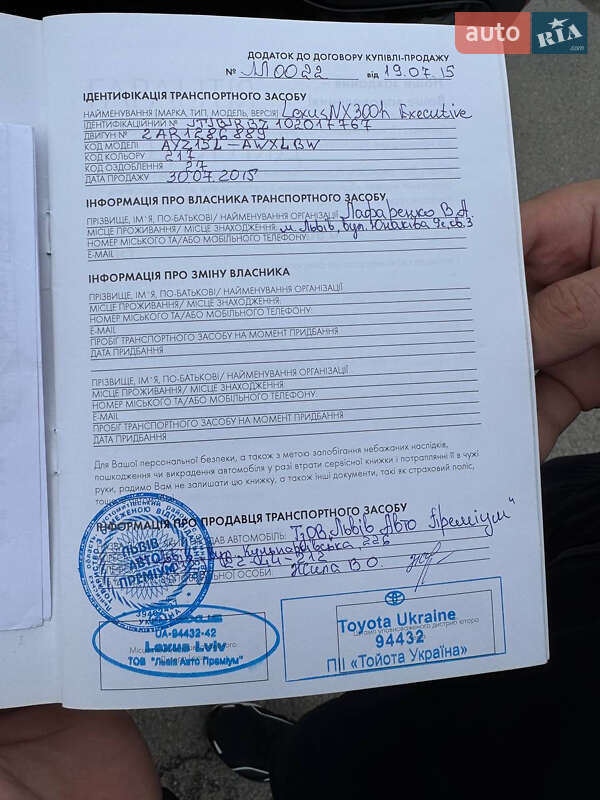 auto RIA .com
ДОДАТОК ДО ДОГОВОРУ КУПІВЛІ-ПРОДАЖУ
№ ЛЛ0022 від 19.07.15
ІДЕНТИФІКАЦІЯ ТРАНСПОРТНОГО ЗАСОБУ
НАЙМЕНУВАННЯ (МАРКА, ТИП, МОДЕЛЬ, ВЕРСІЯ) Lexus NX300h Executive
ІДЕНТИФІКАЦІЙНИЙ № JTJBJRBZ102017767
ДВИГУН № 2AR1286889
КОД МОДЕЛІ AYZ15L-AWXLBW
КОД КОЛЬОРУ 217
КОД ОЗДОБЛЕННЯ 27
ДАТА ПРОДАЖУ 30.07.2015
ІНФОРМАЦІЯ ПРО ВЛАСНИКА ТРАНСПОРТНОГО ЗАСОБУ
ПРІЗВИЩЕ, ІМ'Я, ПО-БАТЬКОВІ/ НАЙМЕНУВАННЯ ОРГАНІЗАЦІЇ В.А.
МІСЦЕ ПРОЖИВАННЯ/ МІСЦЕ ЗНАХОДЖЕННЯ: м. Львів, вул.
НОМЕР МІСЬКОГО ТА/АБО МОБІЛЬНОГО ТЕЛЕФОНУ:
E-MAIL
ІНФОРМАЦІЯ ПРО ЗМІНУ ВЛАСНИКА
ПРІЗВИЩЕ, ІМ'Я, ПО-БАТЬКОВІ/ НАЙМЕНУВАННЯ ОРГАНІЗАЦІЇ
МІСЦЕ ПРОЖИВАННЯ/ МІСЦЕ ЗНАХОДЖЕННЯ:
НОМЕР МІСЬКОГО ТА/АБО МОБІЛЬНОГО ТЕЛЕФОНУ:
E-MAIL
ПРОБІГ ТРАНСПОРТНОГО ЗАСОБУ НА МОМЕНТ ПРИДБАННЯ
ДАТА ПРИДБАННЯ
ПРІЗВИЩЕ, ІМ'Я, ПО-БАТЬКОВІ/ НАЙМЕНУВАННЯ ОРГАНІЗАЦІЇ
МІСЦЕ ПРОЖИВАННЯ/ МІСЦЕ ЗНАХОДЖЕННЯ:
НОМЕР МІСЬКОГО ТА/АБО МОБІЛЬНОГО ТЕЛЕФОНУ:
E-MAIL
ПРОБІГ ТРАНСПОРТНОГО ЗАСОБУ НА МОМЕНТ ПРИДБАННЯ
ДАТА ПРИДБАННЯ
Для Вашої персональної безпеки, а також з метою запобігання небажаних наслідків,
пошкодження чи викрадення автомобіля у разі втрати сервісної книжки і потраплянні її в чужі
руки, радимо Вам не залишати цю книжку, а також інші документи, такі як страховий поліс,
ІНФОРМАЦІЯ ПРО ПРОДАВЦЯ ТРАНСПОРТНОГО ЗАСОБУ
АВТОМОБІЛЬ: ТзОВ „Львів Авто Преміум"
вул. Кульпарківська, 226
ОСОБИ: Жила В О.
ЛЬВІВ
АВТО
ПРЕМІУМ
УКРАЇНА
UA-94432-42
Lexus Lviv
ТОВ "Львів Авто Преміум"
Toyota Ukraine
94432
ПІІ «Тойота Україна»